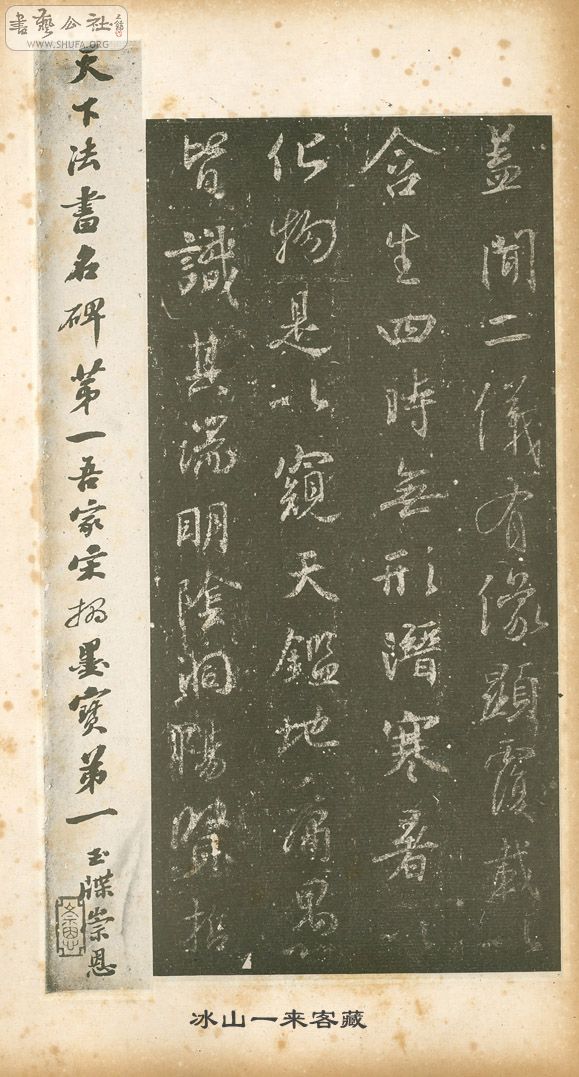 書藝公社
WWW.SHUFA.ORG
蓋聞二儀有像顯覆載以
含生四時無形潛寒暑以
化物是以窺天鑑地庸愚
皆識其端明陰洞陽賢哲
天下法書名碑第一吾家宋搨墨寶第一
玉牒崇恩
冰山一来客藏